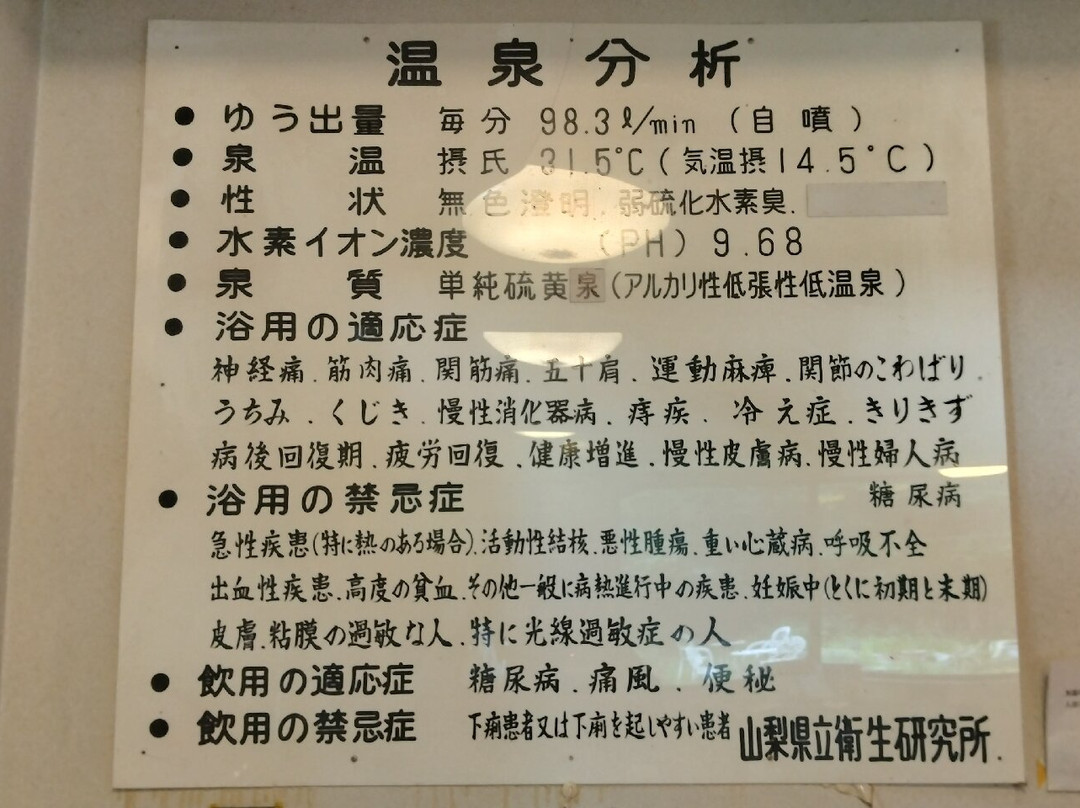 温泉分析
● ゆう出量 毎分 98.3ℓ/min (自噴)
● 泉温 摂氏 31.5°C(気温摂14.5°C)
● 性状 無色澄明.弱硫化水素臭.
● 水素イオン濃度 (PH) 9.68
● 泉質 単純硫黄泉(アルカリ性低張性低温泉)
● 浴用の適応症
神経痛.筋肉痛.関筋痛.五十肩.運動麻痺.関節のこわばり
うちみ.くじき.慢性消化器病.痔疾.冷え症.きりきず
病後回復期.疲労回復.健康増進.慢性皮膚病.慢性婦人病
糖尿病
● 浴用の禁忌症
急性疾患(特に熱のある場合).活動性結核.悪性腫瘍.重い心蔵病.呼吸不全
出血性疾患.高度の貧血.その他一般に病熱進行中の疾患.妊娠中(とくに初期と末期)
皮膚.粘膜の過敏な人.特に光線過敏症の人
● 飲用の適応症 糖尿病.痛風.便秘
● 飲用の禁忌症 下痢患者又は下痢を起しやすい患者
山梨県立衛生研究所.